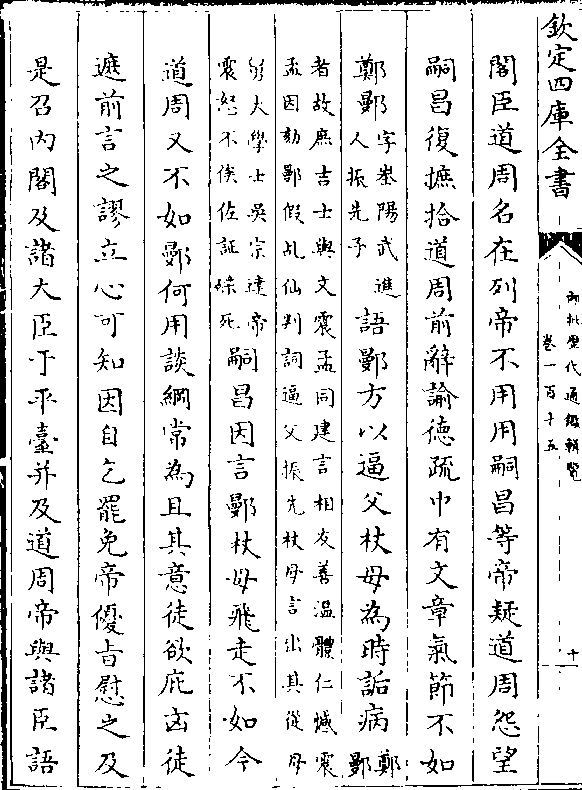 欽定四庫全書
御批歷代通鑑輯覽
卷一百十五
十
閣臣道周名在列帝不用用嗣昌等帝疑道周怨望
嗣昌復摭拾道周前辭諭德疏中有文章氣節不如
鄭鄤
字峚陽武進
人振先子
語鄤方以逼父杖母為時詬病
鄭
鄤
者故庶吉士與文震孟同建言相友善溫體仁憾震
孟因劾鄤假乩仙判詞逼父振先杖母言出其從母
舅大學士吳宗達帝
震怒不俟佐証磔死
嗣昌因言鄤杖母飛走不如今
道周又不如鄤何用談綱常為且其意徒欲庇凶徒
遮前言之謬立心可知因自乞罷免帝優旨慰之及
是召內閣及諸大臣于平臺并及道周帝與諸臣語